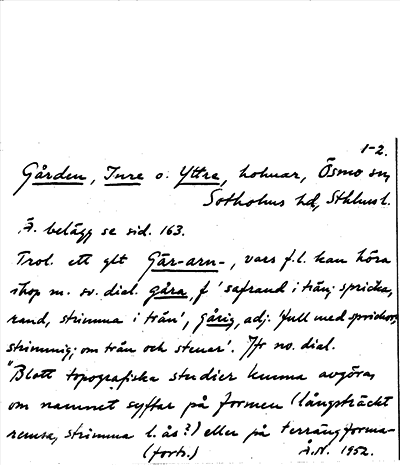 1-2.
Gården, Inre o. Yttre, holmar, Ösmo sn,
Sotholms hd, Sthlms l.
Ä. belägg se sid. 163.
Trol. ett glt Gār-arn-, vars f.l. kan höra
ihop m. sv. dial. gåra, f 'safrand i trä,
rand, strimma i trä', gårig, adj. full med sprickor,
strimmig; om trän och stenar'. Jfr no. dial.
"Blott topografiska studier kunna avgöra,
om namnet syftar på formen (långsträckt
remsa, strimma l. ås?) eller på terrängforma-
(forts.) Å.N. 1952.